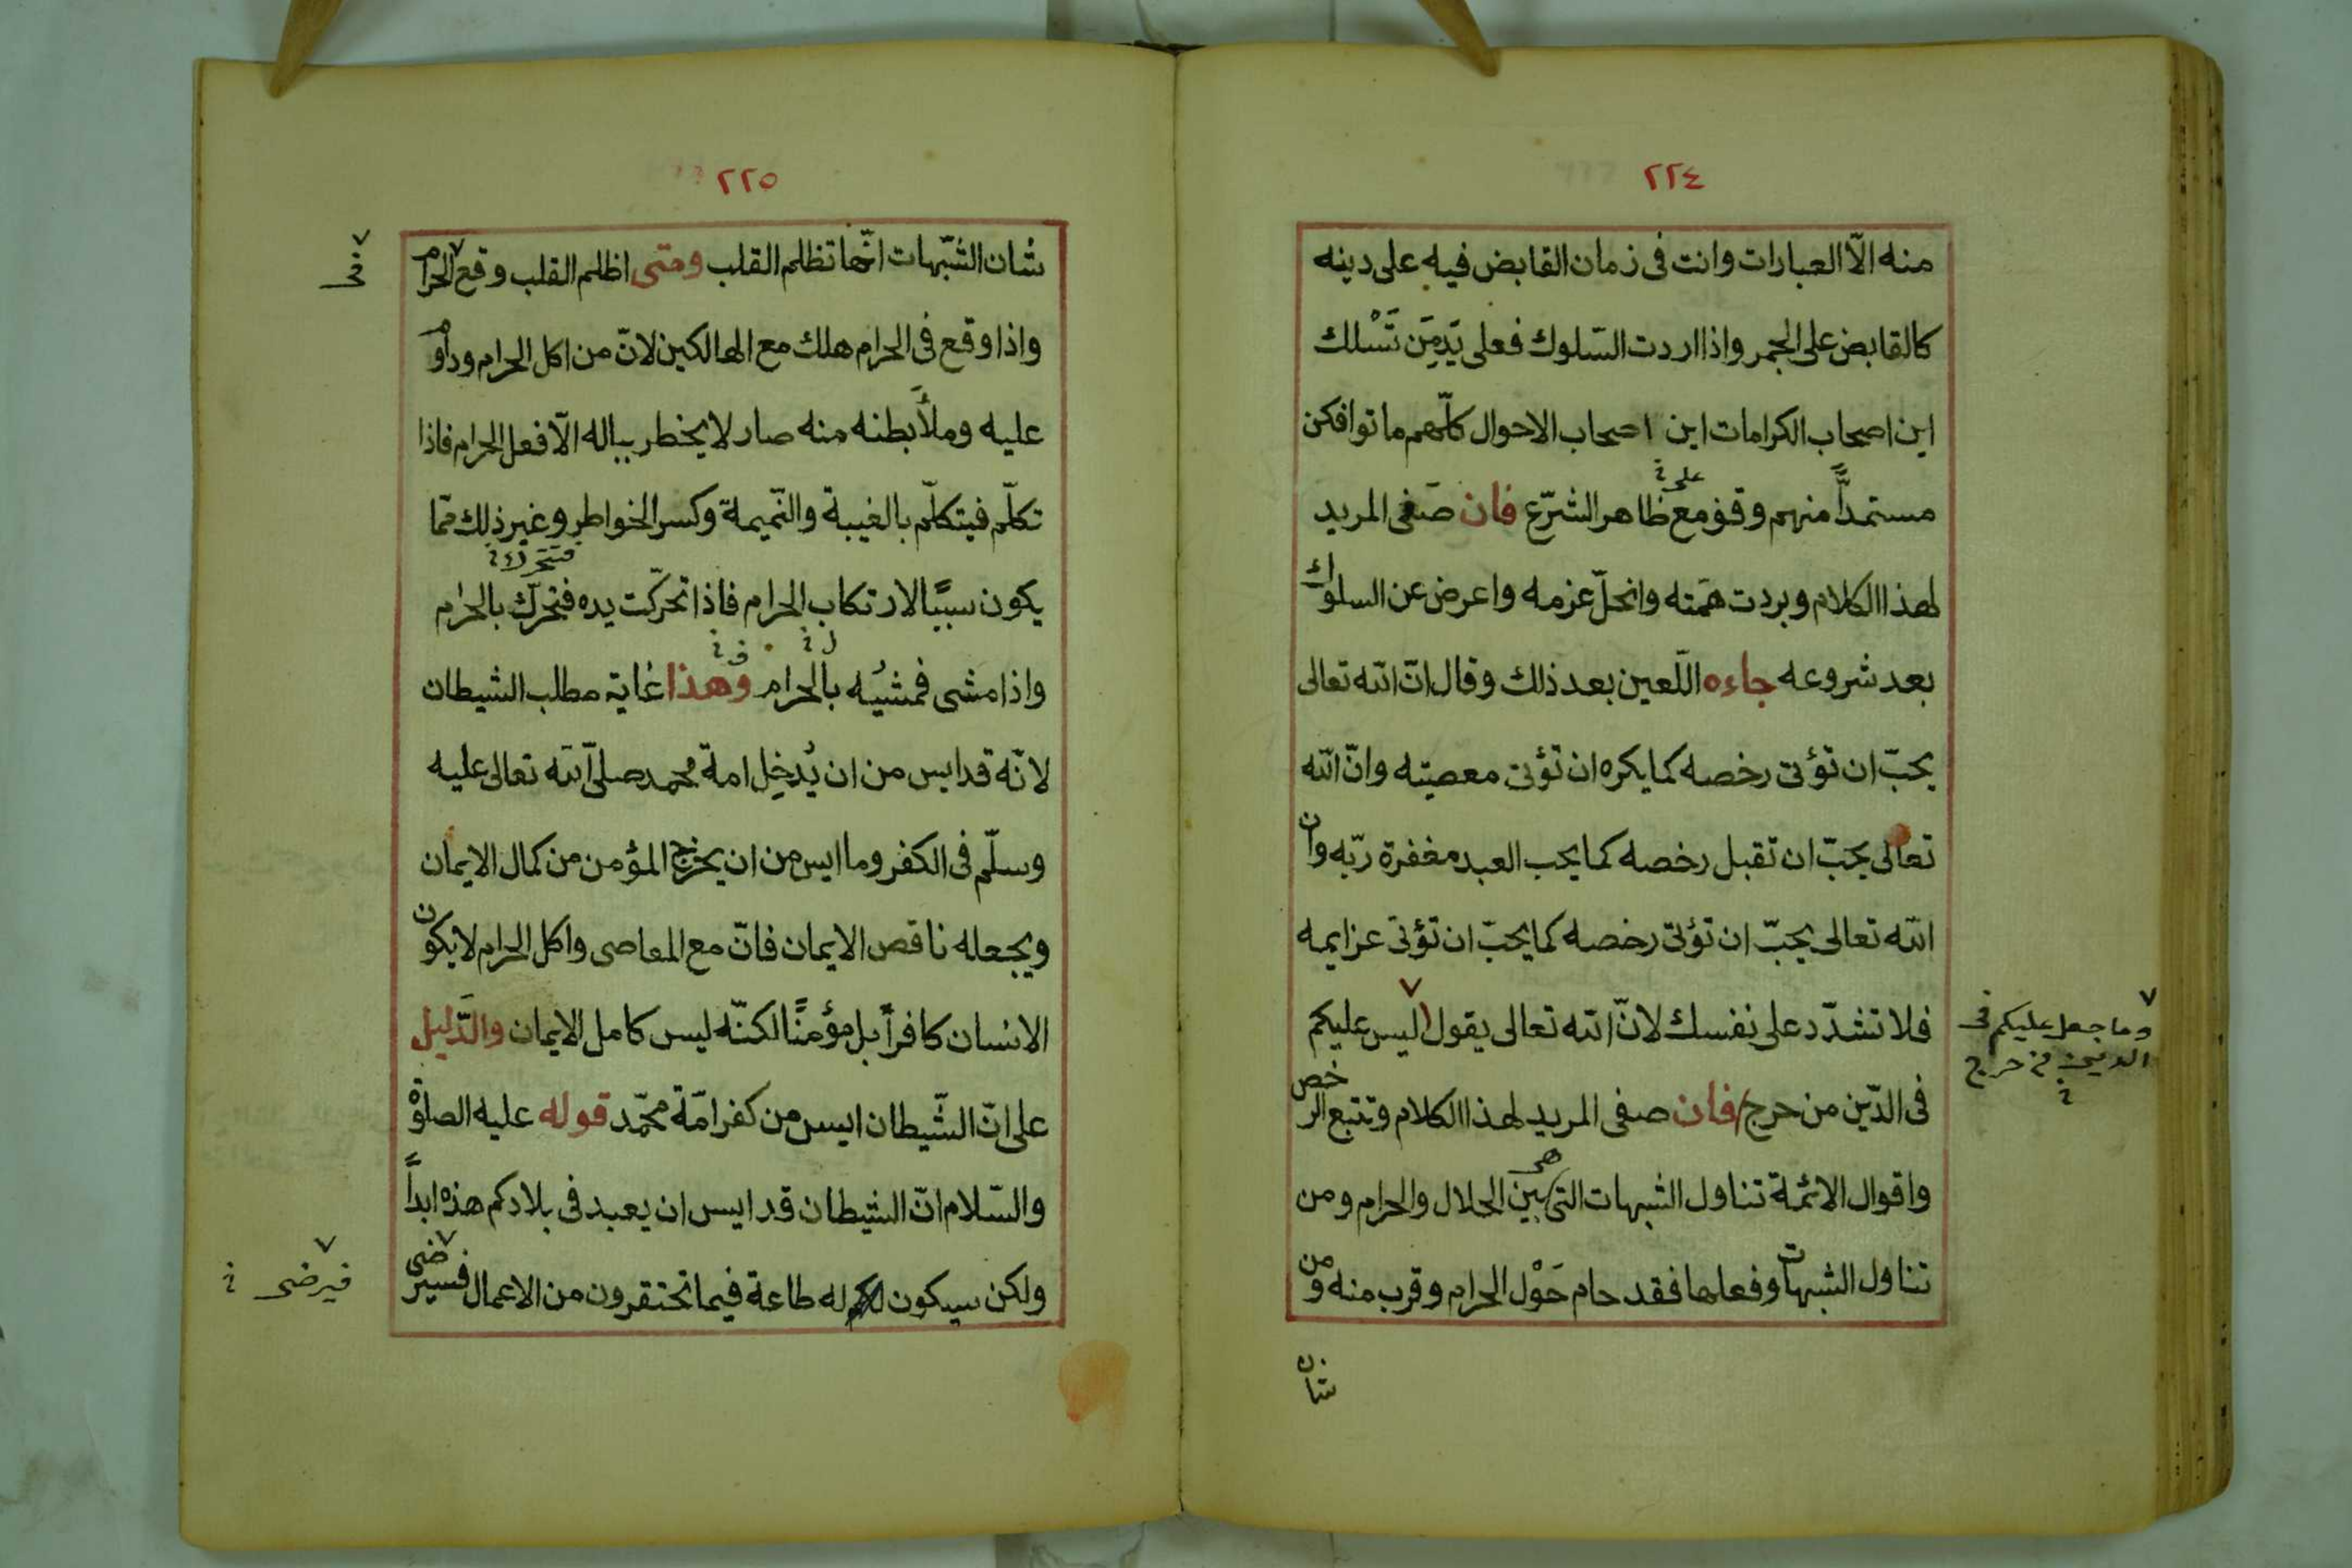 ٢٢٤
منه الّا العبارات وانت فى زمان القابض فيه على دينه
كالقابض على الجمر واذا اردت السّلوك فعلى يَدِمَن تَسْلك
اين اصحاب الكرامات اين اصحاب الاحوال كلّهم ماتوا فكن
على
مستمدًّا منهم وقف مع ظاهر الشرّع فان صَغى المريد
لهذا الكلام وبردت همّته وانحلّ عزمه واعرض عن السلوك
بعد شروعه جاءه اللّعين بعد ذلك وقال انّ الله تعالى
يحبّ ان تؤتى رخصه كما يكره ان تؤتى معصيته وانّ الله
تعالى يحبّ ان تقبل رخصه كما يحب العبد مغفرة ربّه وان
الله تعالى يحبّ ان تؤتى رخصه كما يحبّ ان تؤتى عزايمه
فلا تشدّد على نفسك لانّ الله تعالى يقول ليس عليكم
وما جعل عليكم فى
الدين من حرج
فى الدّين من حرج فان صغى المريد لهذا الكلام وتتبع الرخص
واقوال الائمّة تناول الشبهات التى هى بين الحلال والحرام ومن
تناول الشبهات وفعلها فقد حام حَوْل الحرام وقرب منه ومن
شان
٢٢٥
شان الشّبهات انّها تظلم القلب ومتى اظلم القلب وقع الحرام
فى
واذا وقع فى الحرام هلك مع الهالكين لانّ من اكل الحرام وداوم
عليه وملأ بطنه منه صار لا يخطر بباله الّا فعل الحرام فاذا
تكلّم فيتكلّم بالغيبة والنّميمة وكسر الخواطر وغير ذلك ممّا
فتتحرك
يكون سببًا لارتكاب الحرام فاذا تحرّكت يده فتحرّك بالحرام
واذا مشى فمشيُه بالحرام وهذا غاية مطلب الشيطان
لانّه قد ايس من ان يُدخِل امة محمد صلىّ الله تعالى عليه
وسلّم فى الكفر وما ايس من ان يخرج المؤمن من كمال الايمان
ويجعله ناقص الايمان فانّ مع المعاصى واكل الحرام لا يكون
الانسان كافرًا بل مؤمنًا لكنّه ليس كامل الايمان والدّليل
على انّ الشّيطان ايس من كفر امّة محمّد قوله عليه الصلوة
والسّلام انّ الشيطان قد ايس ان يعبد فى بلادكم هذه ابدًا
ولكن سيكون له طاعة فيما تحتقرون من الاعمال فسيرضى
فيرضى